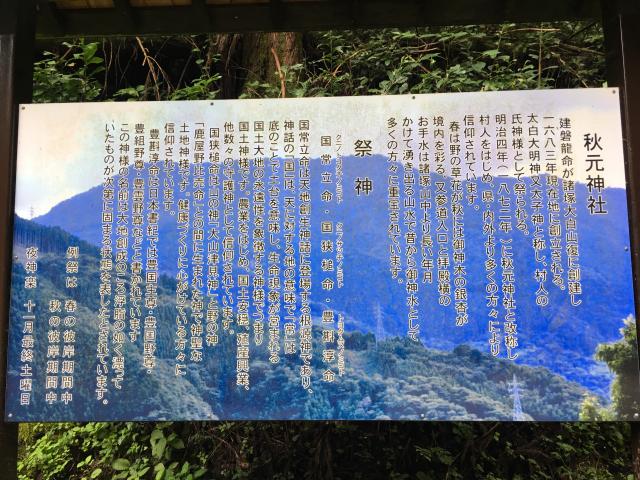 秋元神社
建磐龍命が諸塚太白山頂に創建し
一六八三年現在地に創立される。
太白大明神又太子神と称し、村人の
氏神様として祭られる。
明治四年(一八七二年)に秋元神社と改称し
村人をはじめ、県・内外より多くの方々により
信仰されています。
春は野の草花が秋には御神木の銀杏が
境内を彩る。又参道入口と拝殿横の
お手水は諸塚山中より長い年月
かけて湧き出る山水で昔から御神水として
多くの方々に重宝されています。
祭神
クニノトコタチノミコト クニノサヅチノミコト トヨクモヌノミコト
国常立命・国狭槌命・豊斟渟命
国常立命は天地創生神話に登場する根源神であり、
神話の「国」は、天に対する地の意味で「常」は
底のことで土台を意味し、生命現象が包まれる
国土大地の永遠性を象徴する神様でつまり
国土神様です。農業をはじめ、国土安穏、殖産興業、
他数々の守護神として信仰されています。
国狭槌命は山の神「大山津見神」と野の神
「鹿屋野比売命」との間に生まれた神で神聖な
土地神様です。健康づくりに心がけている方々に
信仰されています。
豊斟渟命は日本書紀では豊国主尊・豊国野尊・
豊組野尊・豊雲野神などと書かれています
この神様の名前は大地創成のころ浮脂の如く漂って
いたものが次第に固まる状態を表したとされています。
例祭は 春の彼岸期間中
秋の彼岸期間中
夜神楽 十一月最終土曜日